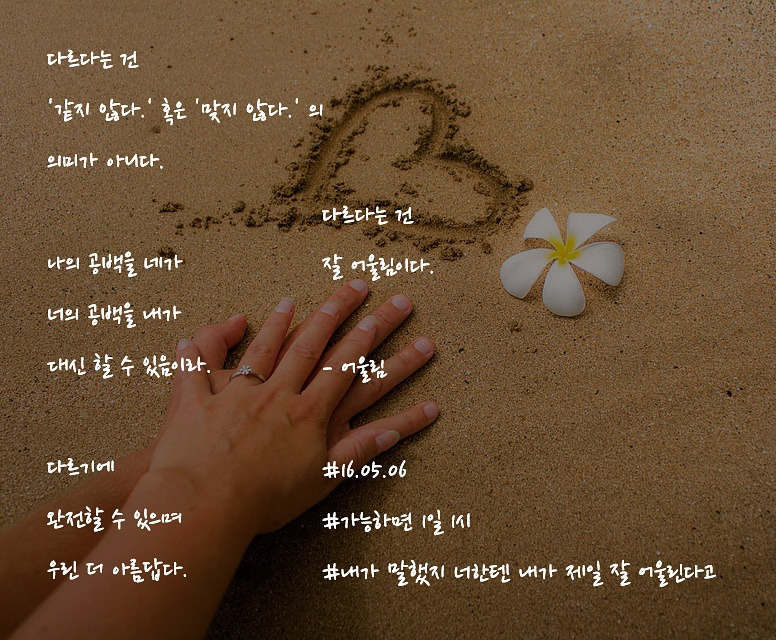 다르다는 건
'같지 않다.' 혹은 '맞지 않다.' 의
의미가 아니다.
나의 공백을 네가
너의 공백을 내가
대신 할 수 있음이라.
다르기에
완전할 수 있으며
우린 더 아름답다.
다르다는 건
잘 어울림이다.
- 어울림
#16.05.06
#가능하면 1일 1시
#내가 말했지 너한텐 내가 제일 잘 어울린다고